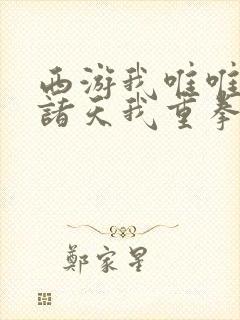 西游我唯唯
諸天我重拳
鄭家星